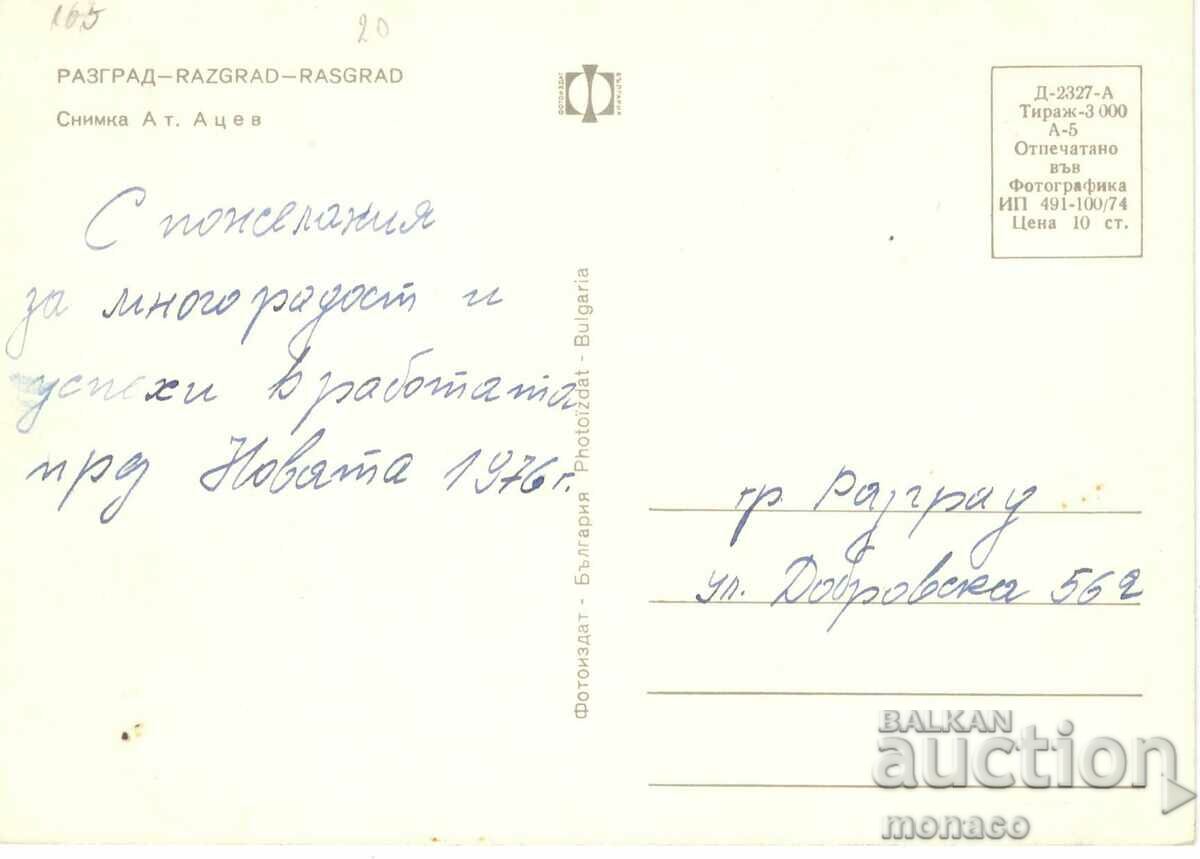 165
20
РАЗГРАД—RAZGRAD—RASGRAD
Снимка Ат. Ацев
ФОТОИЗДАТ
БЪЛГАРИЯ
Д-2327-А
Тираж-3 000
А-5
Отпечатано
във
Фотографика
ИП 491-100/74
Цена 10 ст.
С пожелания
за много радост и
успехи в работата
през Новата 1976 г.
Фотоиздат - България Photoïzdat - Bulgaria
гр. Разград
ул. Добровска 56 г
BALKAN
auction
monaco